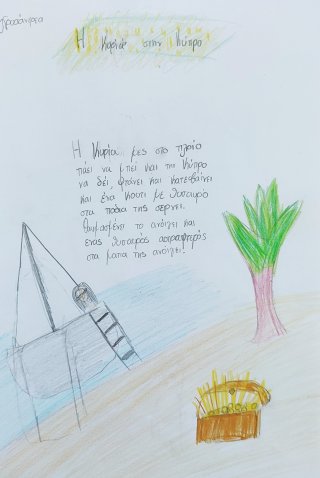 Η Κυρία στην Κύπρο
Η Κυρία, μες στο πλοίο
πάει να μπει και την Κύπρο
να δει, φτάνει και κατεβαίνει
και ένα κουτί με θησαυρό
στα πόδια της σέρνει.
Θαυμασμένη το ανοίγει και
ένας θησαυρός αστραφτερός
στα μάτια της ανοίγει!